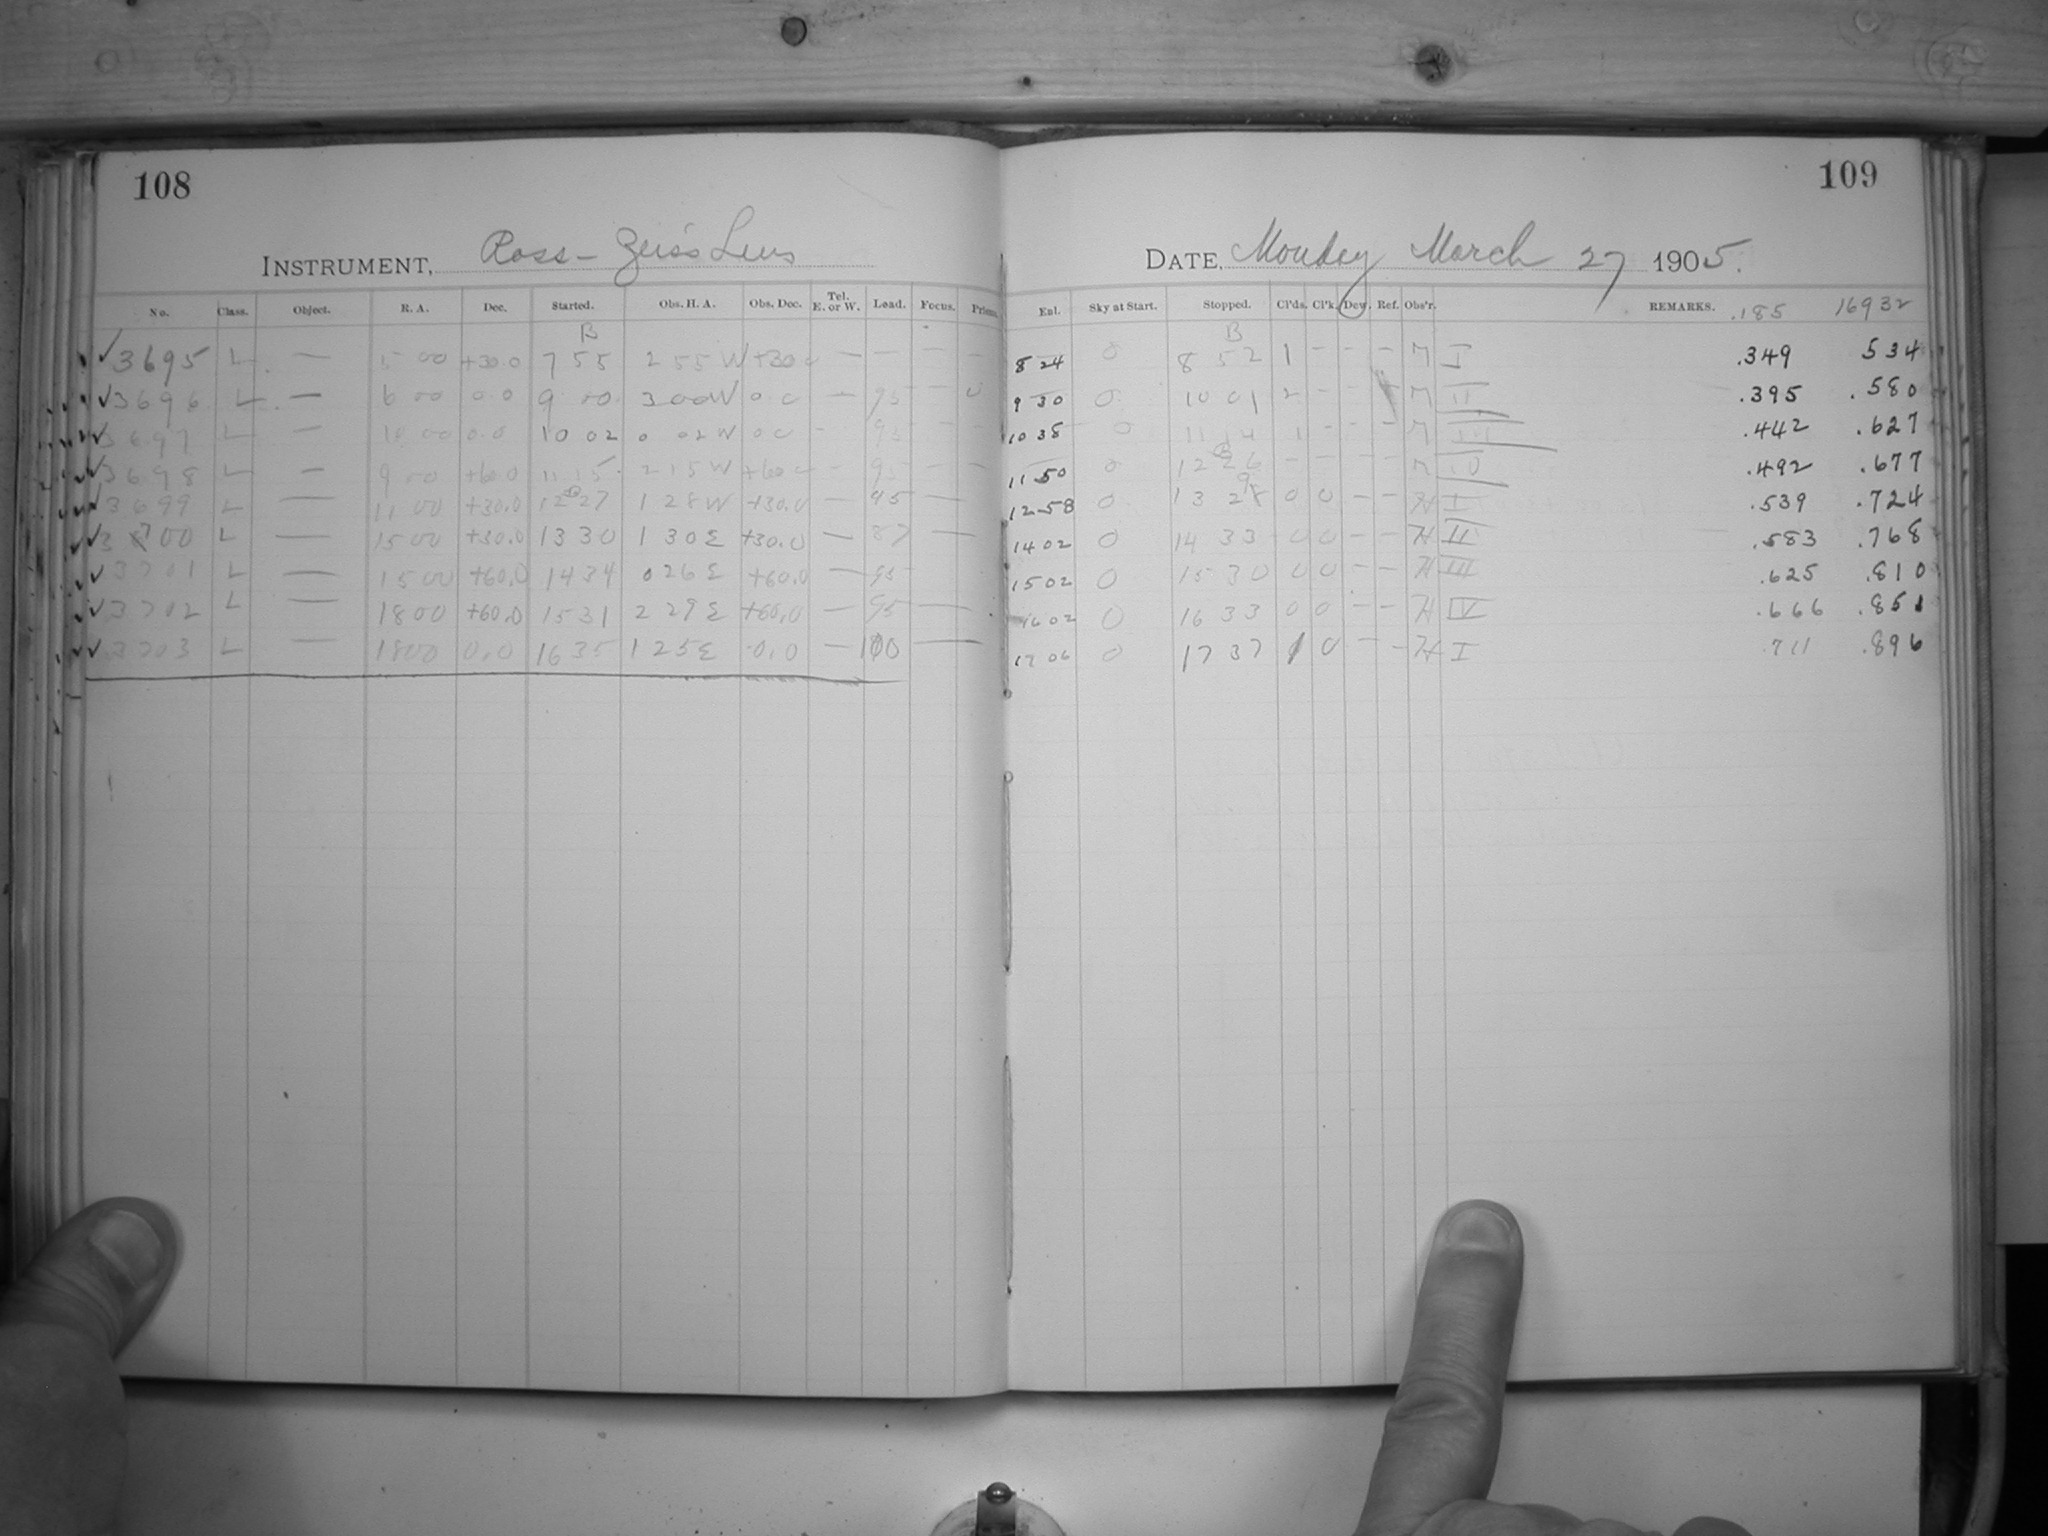 108
INSTRUMENT, Ross-Zeiss Lens
No. Class. Object. R. A. Dec. Started. Obs. H. A. Obs. Dec. Tel. E. or W. Load. Focus. Prisms.
B
3695 L — 5 00 +30.0 7 55 2 55 W +30 0 — — — —
3696 L — 6 00 0.0 9 00 3 00 W 0.0 — 95 —
3697 L — 10 00 0.0 10 02 0 02 W 0 0 — 95 — —
3698 L — 9 00 +60.0 11 15 2 15 W +60 0 — 95 — —
3699 L — 11 00 +30.0 12 27 1 28 W +30.0 — 95 —
3700 L — 15 00 +30.0 13 30 1 30 E +30.0 — 87 —
3701 L — 15 00 +60.0 14 34 0 26 E +60.0 — 95
3702 L — 18 00 +60.0 15 31 2 29 E +60.0 — 95 —
3703 L — 18 00 0.0 16 35 1 25 E 0.0 — 100 —
109
DATE, Monday March 27 1905.
Enl. Sky at Start. Stopped. Cl'ds. Cl'k. Dew. Ref. Obs'r. REMARKS. .185 16932
B
8 24 0 8 52 1 – – – M I .349 534
9 30 0 10 01 2 – – M II .395 .580
10 38 0 11 14 1 – – – M III .442 .627
11 50 0 12 26 – – – – M IV .492 .677
12 58 0 13 28 0 0 – – H I .539 .724
14 02 0 14 33 0 0 – – H II .583 .768
15 02 0 15 30 0 0 – – H III .625 .810
16 02 0 16 33 0 0 – – H IV .666 .851
17 06 0 17 37 1 0 – – H I .711 .896